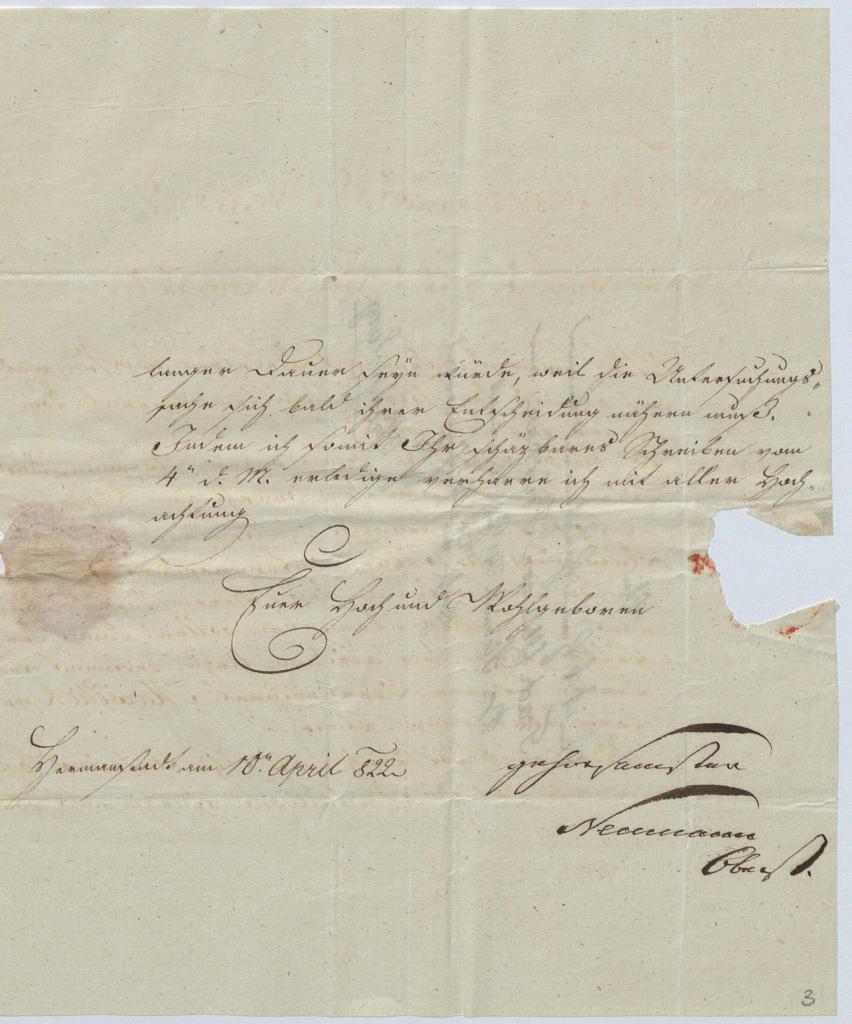 langer Dauer seyn würde, weil die Untersuchungs-
sache sich bald ihrer Entscheidung nähern muß.
Indem ich somit Ihr schäzbares Schreiben vom
4n d. M. erledige verharre ich mit aller Hoch-
achtung
Euer Hoch und Wohlgeboren
Hermanstadt am 10n April 822
gehorsamster
Neumann
Oberst.
3